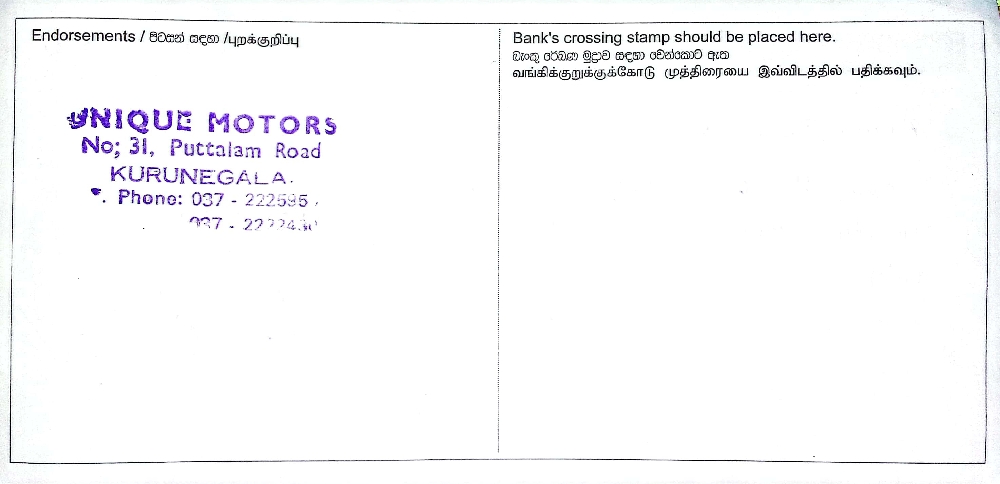 Endorsements / පිටසන් සඳහා /புறக்குறிப்பு
UNIQUE MOTORS
No; 31, Puttalam Road
KURUNEGALA.
Phone: 037 - 222595
037 -
Bank's crossing stamp should be placed here.
බැංකු රේඛණ මුද්‍රාව සඳහා වෙන්කොට ඇත
வங்கிக்குறுக்குக்கோடு முத்திரையை இவ்விடத்தில் பதிக்கவும்.